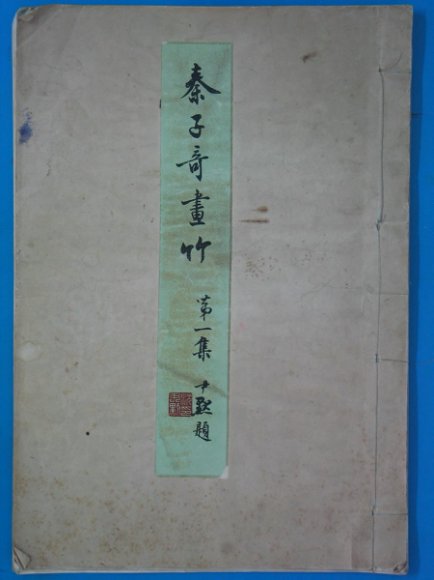 秦子奇畫竹
第一集
尹默題